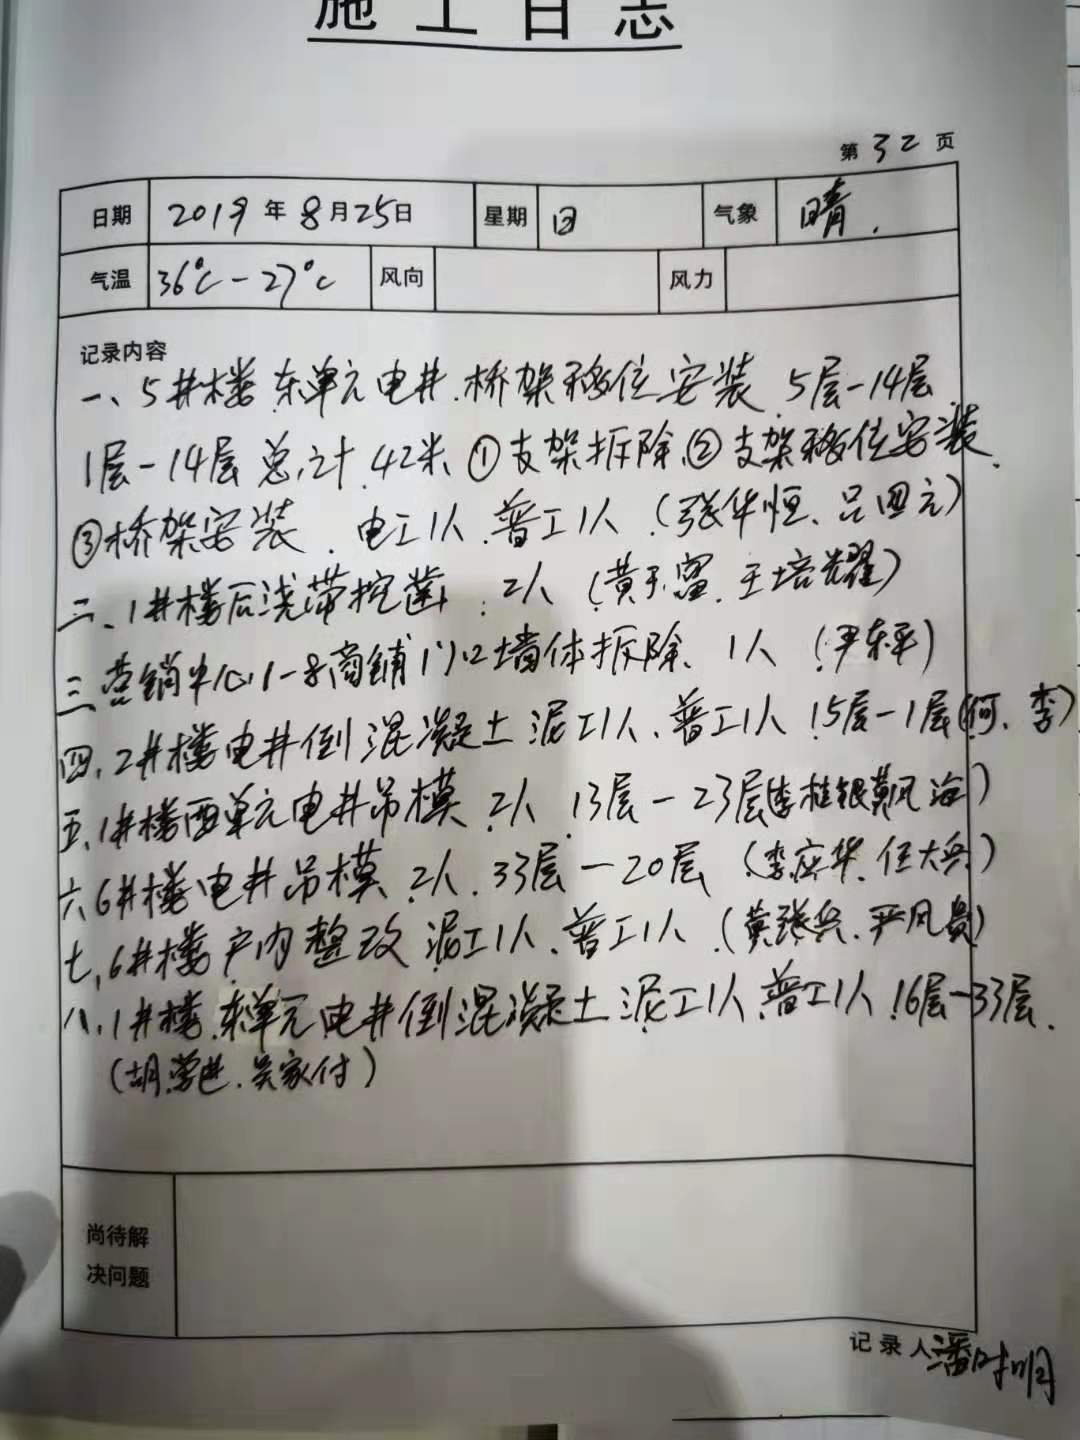 施工日志
第 32 页
日期 2019年8月25日 星期 日 气象 晴.
气温 36℃-27℃ 风向 风力
记录内容
一、5#楼东单元电井.桥架移位安装.5层-14层.
1层-14层总计42米①支架拆除②支架移位安装.
③桥架安装.电工1人.普工1人(张华恒、吕四元)
二、1#楼后浇带挖凿:2人(黄于富、王培耀)
三、营销中心1-8商铺门口墙体拆除、1人(尹东平)
四、2#楼电井倒混凝土泥工1人、普工1人15层-1层(何、李)
五、1#楼西单元电井吊模.2人.13层-23层(李桂银黄风海)
六、6#楼电井吊模.2人.33层-20层(李应华.任大兵)
七、6#楼户内整改泥工1人、普工1人(黄张兵.严风贵)
八、1#楼.东单元电井倒混凝土泥工1人.普工1人.16层-33层.
(胡.进.吴家付)
尚待解
决问题
记录人潘时明